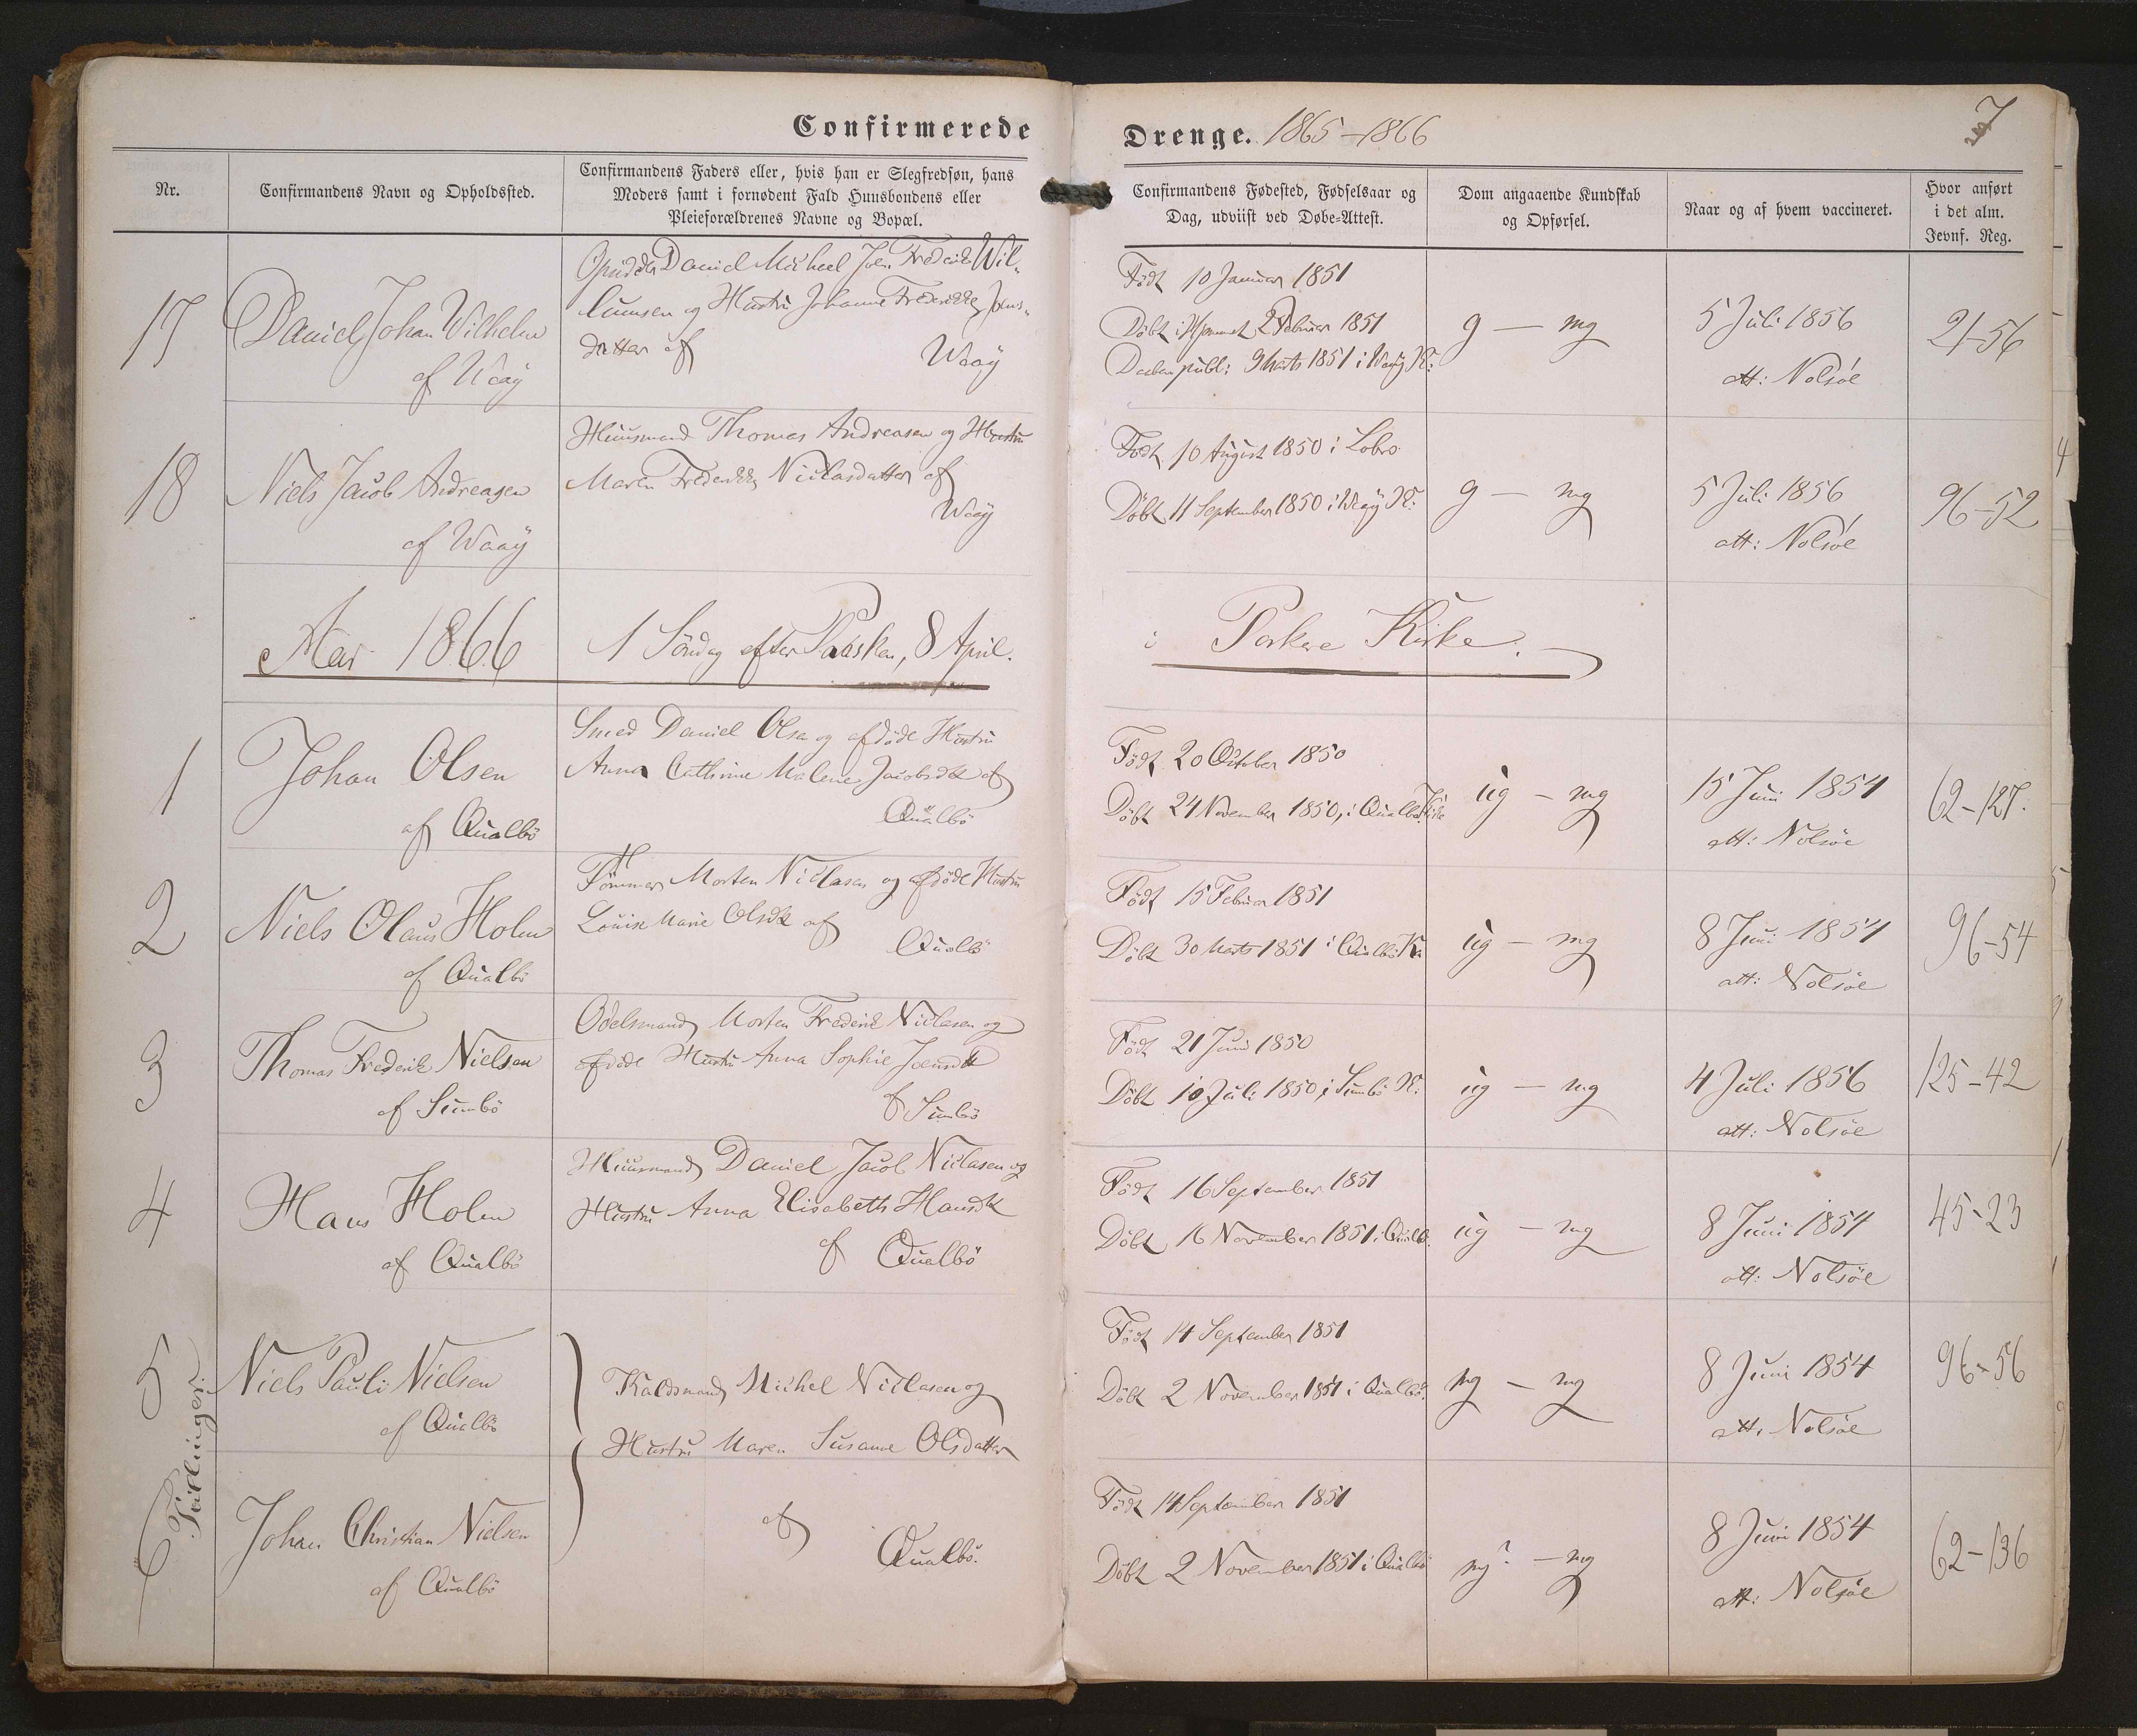 Confirmerede
Drenge. 1865–1866
7
Nr.
Confirmandens Navn og Opholdssted.
Confirmandens Faders eller, hvis han er Slegfredsøn, hans
Moders samt i fornødent Fald Huusbondens eller
Pleieforældrenes Navne og Bopæl.
Confirmandens Fødested, Fødselsaar og
Dag, udviist ved Døbe-Attest.
Dom angaaende Kundskab
og Opførsel.
Naar og af hvem vaccineret.
Hvor anført
i det alm.
Jevnf. Reg.
17
Daniel Johan Vilhelm
af Waaÿ
Daniel Micheel Joen Frederik Wil-
lumsen og Hustru Johanne Frederikke Joens-
datter af
Waaÿ
Født 10 Januar 1851
Döbt i Hjemmet 2 Februar 1851
Daaben publ: 9 Marts 1851 i Waaÿ K:
g — mg
5 Juli 1856
att: Nolsöe
21-56
18
Niels Jacob Andreasen
af Waaÿ
Huusmand Thomas Andreasen og Hustru
Maren Frederikke Niclasdatter af
Waaÿ
Født 10 August 1850 i Lobro
Döbt 11 September 1850 i Waaÿ K:
g — mg
5 Juli 1856
att: Nolsöe
96-52
Aar 1866
1 Söndag efter Paasken, 8 April.
i Porkere Kirke.
1
Johan Olsen
af Qualbö
Smed Daniel Olsen og afdöde Hustru
Anna Cathrine Malene Jacobsdtr af
Qualbö
Født 20 October 1850
Döbt 24 November 1850, i Qualbö Kirke
ug — mg
15 Juni 1854
att: Nolsöe
62-127.
2
Niels Olaus Holm
af Qualbö
Tömmerm Morten Niclasen og afdöde Hustru
Louise Marie Olsdtr af
Qualbö
Født 15 Februar 1851
Döbt 30 Marts 1851 i Qualbö K
ug — mg
8 Juni 1854
att: Nolsöe
96-54
3
Thomas Frederik Nielsen
af Sumbö
Odelsmand Morten Frederik Niclasen og
afdöde Hustru Anna Sophie Joensdtr
af Sumbö
Født 21 Juni 1850
Döbt 10 Juli 1850 i Sumbö K:
ug — mg
4 Juli 1856
att: Nolsöe
125-42
4
Hans Holm
af Qualbö
Huusmand Daniel Jacob Niclasen og
Hustru Anna Elisabeth Hansdtr
af Qualbö
Født 16 September 1851
Döbt 16 November 1851 i Qualb.
ug — mg
8 Juni 1854
att: Nolsöe
45-23
5
Tvillinger:
Niels Pauli Nielsen
af Qualbö
Michel Niclasen og
Hustru Maren Susanne Olsdatter
af
Qualbö.
Født 14 September 1851
Döbt 2 November 1851 i Qualbö.
mg — mg
8 Juni 1854
att. Nolsöe
96-56
6
Johan Christian Nielsen
af Qualbö
Født 14 September 1851
Döbt 2 November 1851 i Qualbö
mg? — mg
8 Juni 1854
att: Nolsöe
62-136